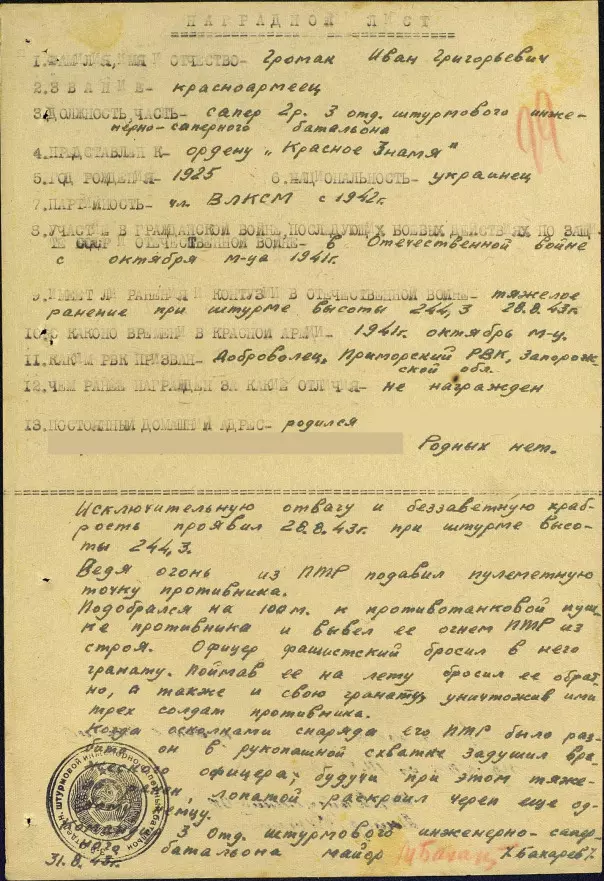 НАГРАДНОЙ ЛИСТ
1.ФАМИЛИЯ,ИМЯ И ОТЧЕСТВО- Громак Иван Григорьевич
2.ЗВАНИЕ- красноармеец
3.ДОЛЖНОСТЬ,ЧАСТЬ- сапер 2р. 3 отд. штурмового инже-
нерно-саперного батальона
4.ПРЕДСТАВЛЕН К- ордену „Красное Знамя"
5.ГОД РОЖДЕНИЯ- 1925 6.НАЦИОНАЛЬНОСТЬ- украинец
7.ПАРТИЙНОСТЬ- чл. ВЛКСМ с 1942г.
8.УЧАСТИЕ В ГРАЖДАНСКОЙ ВОЙНЕ,ПОСЛЕДУЮЩИХ БОЕВЫХ ДЕЙСТВИЯХ ПО ЗАЩИ-
ТЕ СССР И ОТЕЧЕСТВЕННОЙ ВОЙНЕ- в Отечественной войне
с октября м-ца 1941г.
9.ИМЕЕТ ЛИ РАНЕНИЯ И КОНТУЗИИ В ОТЕЧЕСТВЕННОЙ ВОЙНЕ- тяжелое
ранение при штурме высоты 244,3 28.8.43г.
10.С КАКОГО ВРЕМЕНИ В КРАСНОЙ АРМИИ- 1941г. октябрь м-ц.
11.КАКИМ РВК ПРИЗВАН- Доброволец, Приморский РВК, Запорож-
ской обл.
12.ЧЕМ РАНЕЕ НАГРАЖДЕН ЗА КАКИЕ ОТЛИЧИЯ- не награжден
13.ПОСТОЯННЫЙ ДОМАШНИЙ АДРЕС- родился
Родных нет.
Исключительную отвагу и беззаветную храб-
рость проявил 28.8.43г. при штурме высо-
ты 244,3.
Ведя огонь из ПТР подавил пулеметную
точку противника.
Подобрался на 100м. к противотанковой пуш-
ке противника и вывел ее огнем ПТР из
строя. Офицер фашистский бросил в него
гранату. Поймав ее на лету бросил ее обрат-
но, а также и свою гранату, уничтожив ими
трех солдат противника.
Когда осколками снаряда его ПТР было раз-
бито он в рукопашной схватке задушил вра-
жеского офицера, будучи при этом тяже-
лопатой раскроил череп еще од-
немцу.
3 Отд. штурмового инженерно-сапер-
ного батальона майор /Бакарев/
31.8.43г.